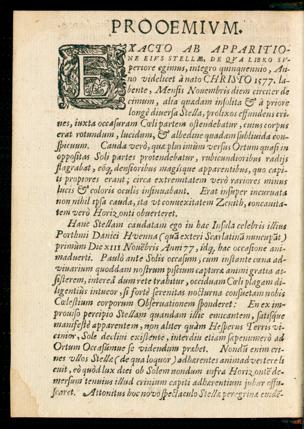 PROOEMIVM.
EXACTO AB APPARITIO-
NE EIVS STELLÆ, DE QVA LIBRO SV-
periore egimus, integro quinquennio, An-
no videlicet à nato CHRISTO 1577. la-
bente, Mensis Nouembris diem circiter de
cimum, alia quædam insolita & à priore
longè diuersa Stella, prolixos effundens cri-
nes, iuxta occasuram Cœli partem ostendebatur, cuius corpus
erat rotundum, lucidum, & albedine quadam subliuida con-
spicuum. Cauda verò, quæ plurimùm versus Ortum quasi in
oppositas Soli partes protendebatur, rubicundioribus radijs
flagrabat, eósq; densioribus magísque apparentibus, quo capi-
ti propiores erant; circa extremitatem verò rariores minus
lucis & coloris oculis insinuabant. Erat insuper incuruata
non nihil ipsa cauda, ita vt conuexitatem Zenith, concauita-
tem verò Horizonti obuerteret.
Hanc Stellam caudatam ego in hac Insula celebris illius
Porthmi Danici Hvenna (quā exteri Scarlatinā nuncupāt)
primùm Die XIII Nouēbris Anni 77, idq́; hac occasione ani-
maduerti. Paulò ante Solis occasum, cum instante cœna ad
viuarium quoddam nostrum piscium capturæ animi gratia as-
sisterem, intereà dum rete trabitur, occiduam Cœli plagam di-
ligentiùs intueor, si fortè serenitas nocturna consuetam nobis
Cælestium corporum Obseruationem sponderet: En ex im-
prouiso percipio Stellam quandam illic emicantem, satisque
manifestè apparentem, non aliter quàm Hesperus Terris vi-
cinior, Sole declini existente, interdiu etiam sapenumerò ad
Ortum Occasúmue se videndum præbet. Nondū enim cri-
nes vllos Stella (de qua loquor) adhærentes animaduertere li-
cuit, eò quòd lux diei ob Solem nondum infra Horizontē de-
mersum tenuius illud crinium capiti adhærentium iubar offu-
scaret. Attonitus hoc nouo spectaculo Stellæ peregrinæ